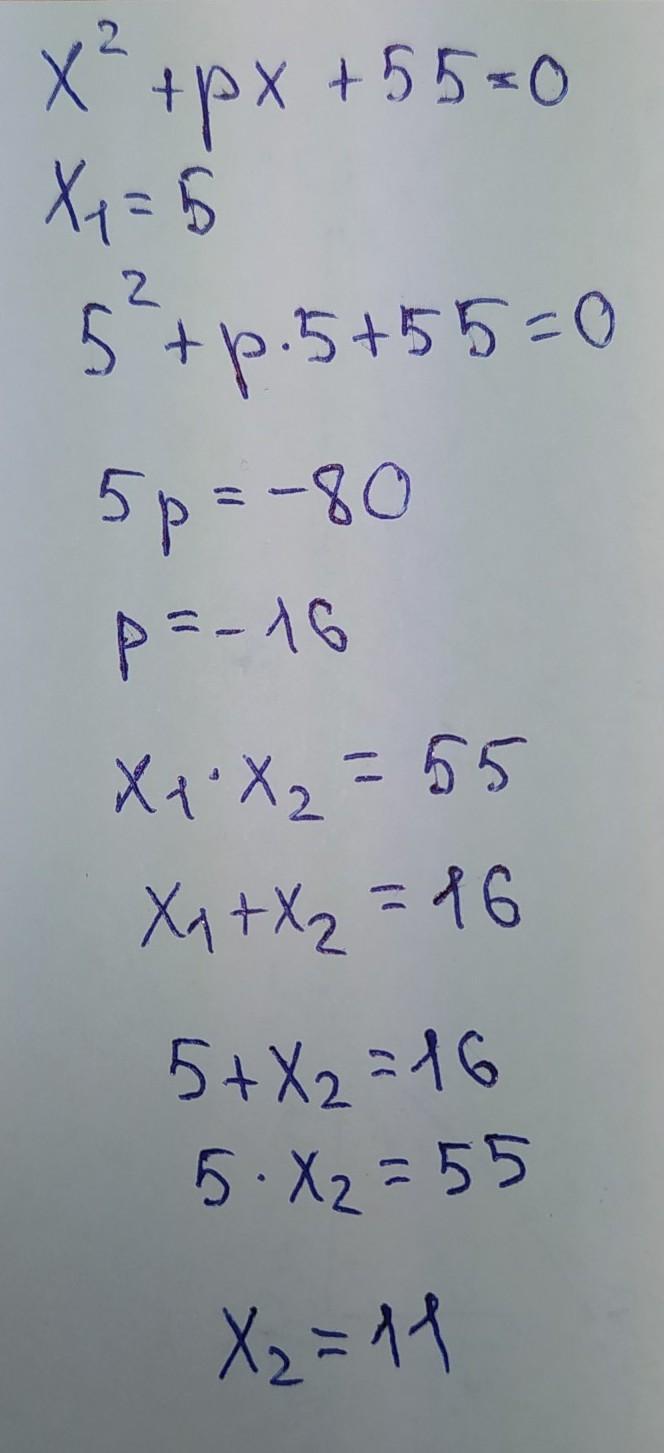 x² + px + 55 = 0
x₁ = 5
5² + p · 5 + 55 = 0
5p = -80
p = -16
x₁ · x₂ = 55
x₁ + x₂ = 16
5 + x₂ = 16
5 · x₂ = 55
x₂ = 11